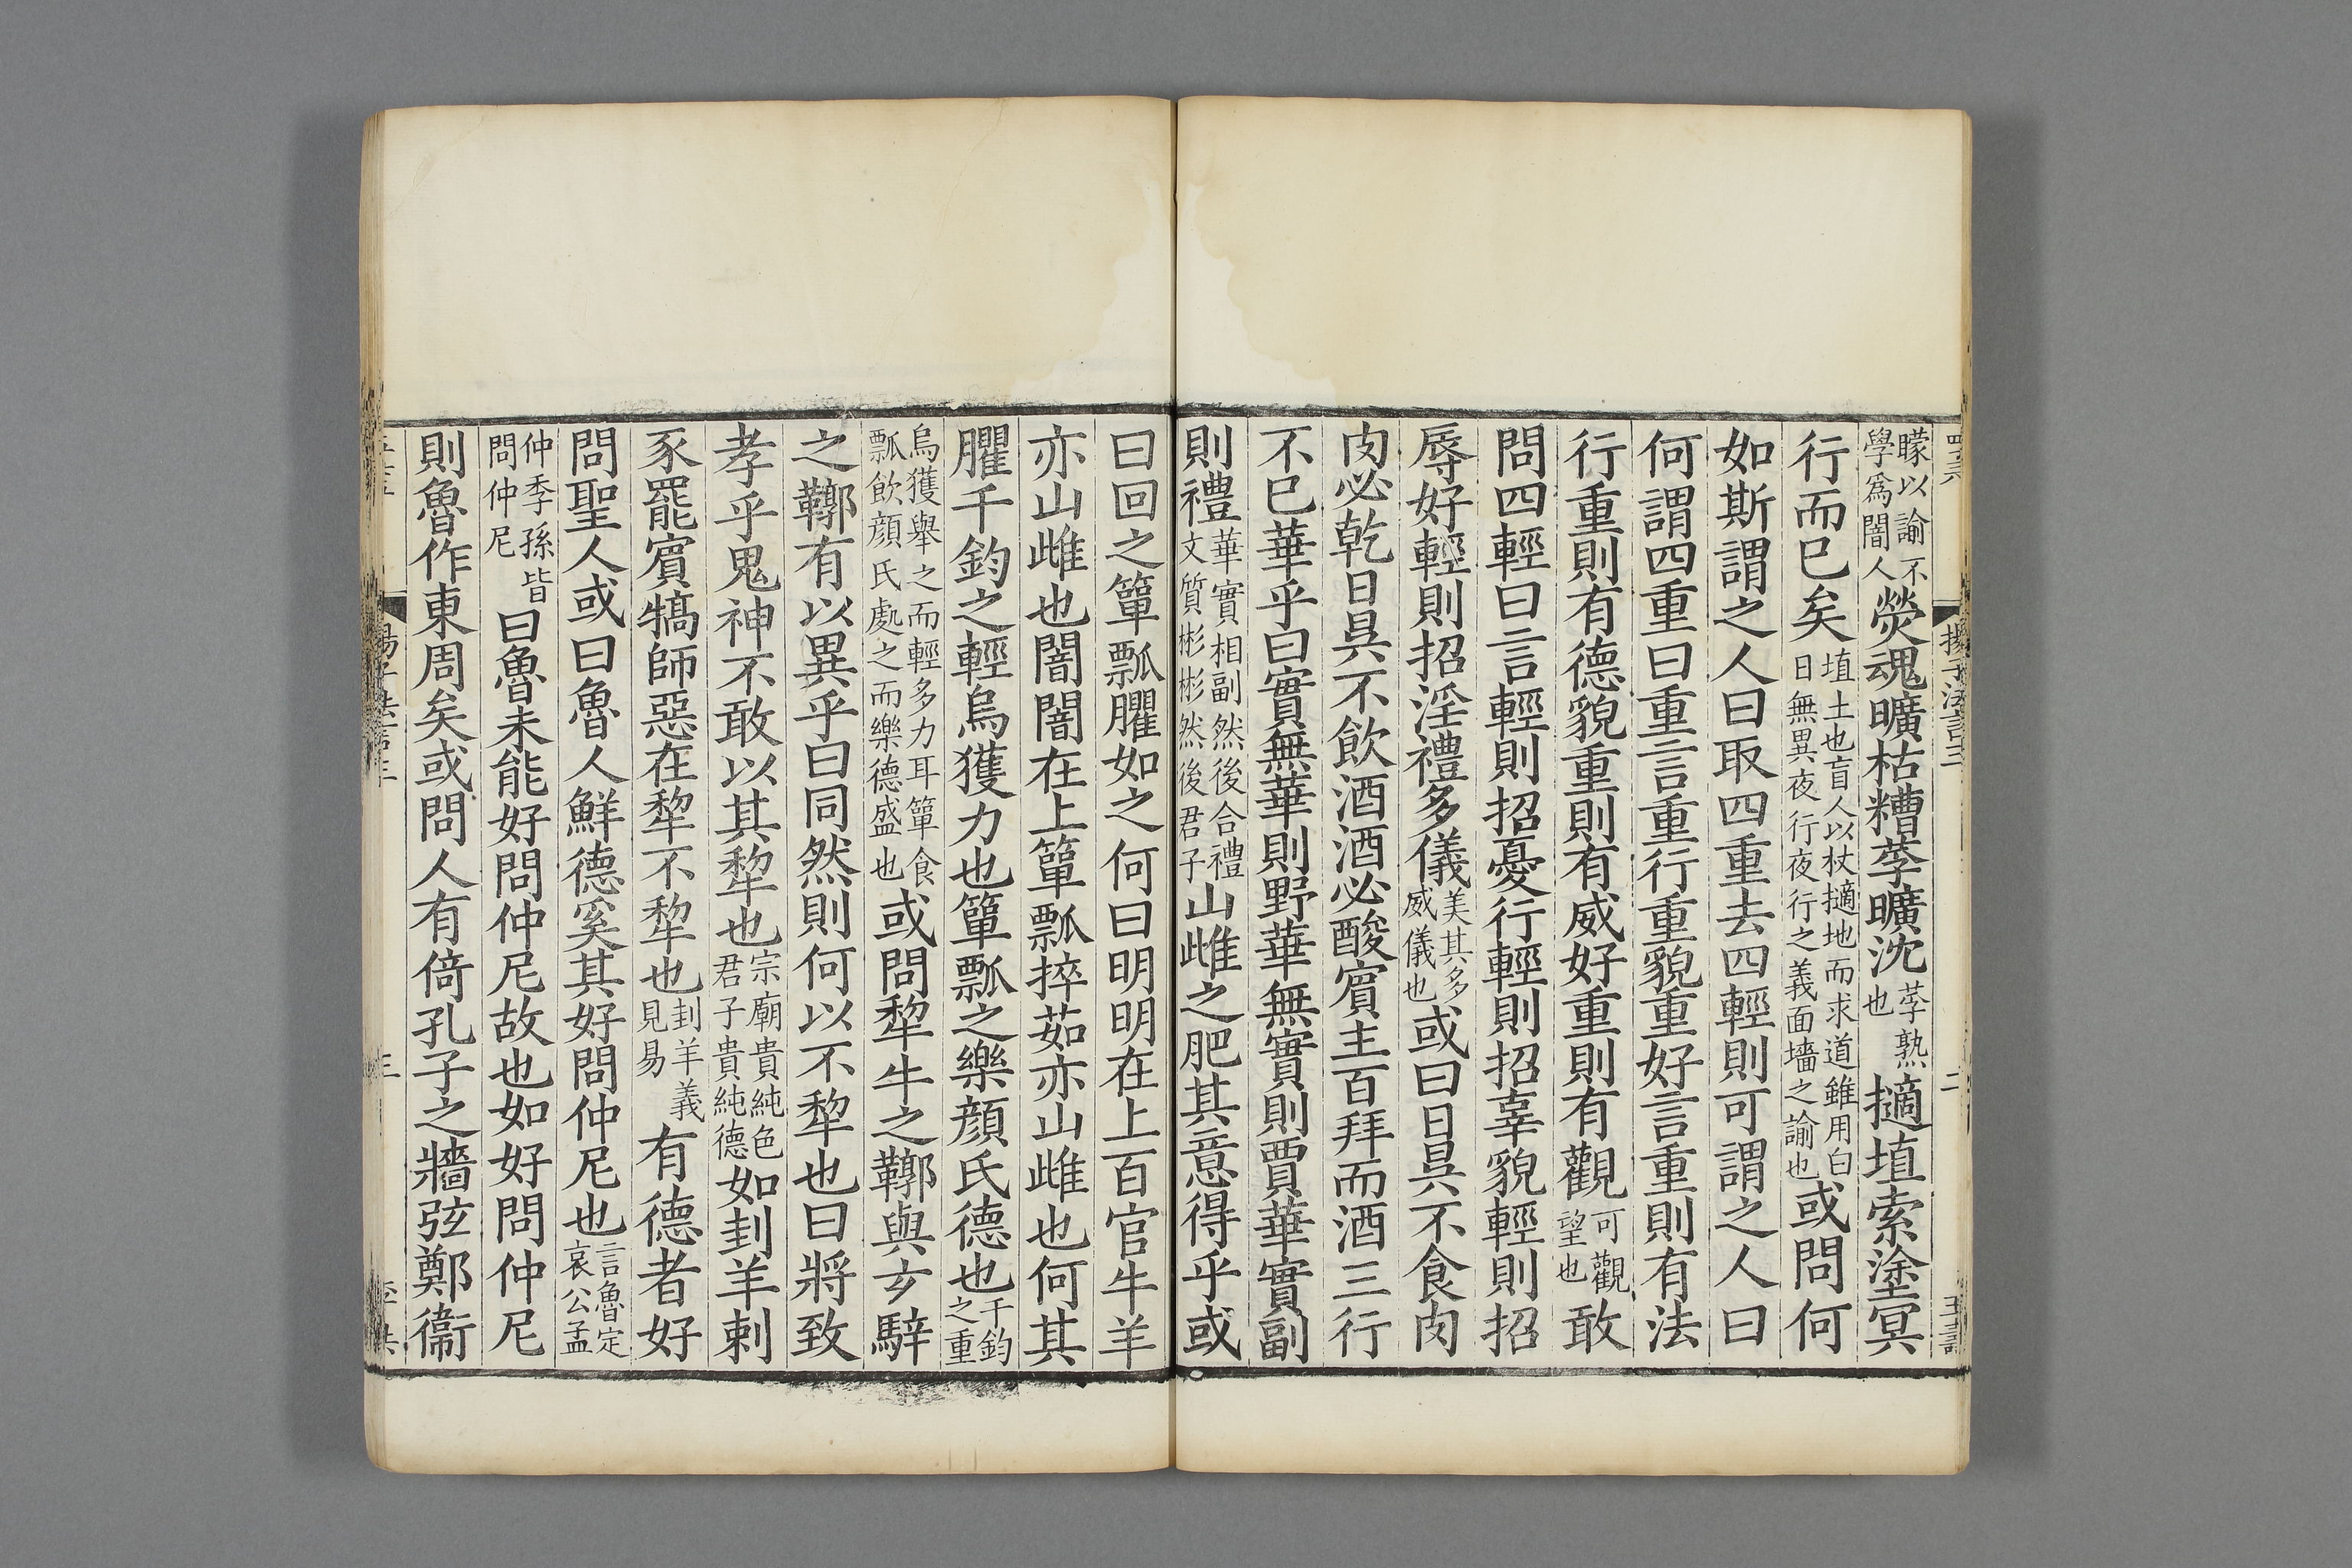 矇以諭不學爲闇人熒魂曠枯糟莩曠沈莩熟也擿埴索塗冥
行而已矣埴土也盲人以杖擿地而求道雖用白日無異夜行夜行之義面墻之諭也或問何
如斯謂之人曰取四重去四輕則可謂之人曰
何謂四重曰重言重行重貌重好言重則有法
行重則有德貌重則有威好重則有觀可觀望也敢
問四輕曰言輕則招憂行輕則招辜貌輕則招
辱好輕則招淫禮多儀美其多威儀也或曰日昃不食肉
肉必乾日昃不飲酒酒必酸賓主百拜而酒三行
不已華乎曰實無華則野華無實則賈華實副
則禮華實相副然後合禮文質彬彬然後君子山雌之肥其意得乎或
曰回之簞瓢臞如之何曰明明在上百官牛羊
亦山雌也闇闇在上簞瓢捽茹亦山雌也何其
臞千鈞之輕烏獲力也簞瓢之樂顔氏德也千鈞之重
烏獲舉之而輕多力耳簞食瓢飲顔氏處之而樂德盛也或問犂牛之鞹與玄騂
之鞹有以異乎曰同然則何以不犂也曰將致
孝乎鬼神不敢以其犂也宗廟貴純色君子貴純德如刲羊刺
豕罷賓犒師惡在犂不犂也刲羊義見易有德者好
問聖人或曰魯人鮮德奚其好問仲尼也言魯定哀公孟
仲季孫皆問仲尼曰魯未能好問仲尼故也如好問仲尼
則魯作東周矣或問人有倚孔子之牆弦鄭衞
揚子法言三
二
三